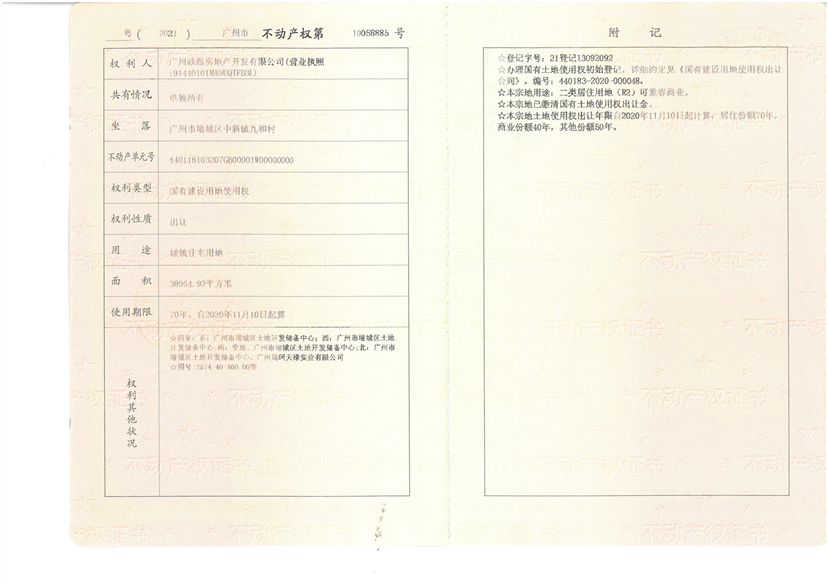 粤( 2021 ) 广州市 不动产权第 10058885 号
权利人 广州政源房地产开发有限公司(营业执照
:91440101MA9UQTFD3L)
共有情况 单独所有
坐落 广州市增城区中新镇九和村
不动产单元号 440118103207GB00001W00000000
权利类型 国有建设用地使用权
权利性质 出让
用途 城镇住宅用地
面积 38964.92平方米
使用期限 70年，自2020年11月10日起算
权利其他状况
☆四至:东:广州市增城区土地开发储备中心;西:广州市增城区土地
开发储备中心;南:空地、广州市增城区土地开发储备中心;北:广州市
增城区土地开发储备中心、广州 天禄实业有限公司
☆图号:2574.40-460.00等
附记
☆登记字号:21登记13092092
☆办理国有土地使用权初始登记，详细约定见《国有建设用地使用权出让
合同》，编号:440183-2020-000048。
☆本宗地用途:二类居住用地（R2）可兼容商业。
☆本宗地已缴清国有土地使用权出让金。
☆本宗地土地使用权出让年限自2020年11月10日起计算:居住份额70年，
商业份额40年，其他份额50年。